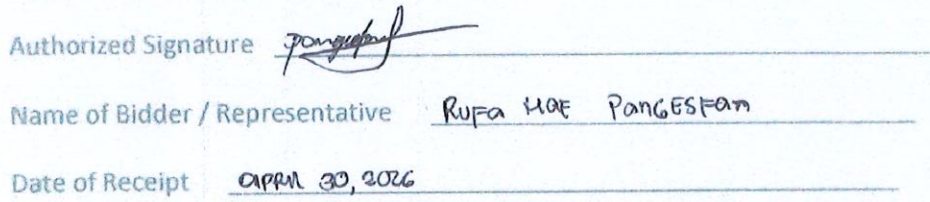 Authorized Signature
Name of Bidder / Representative RUFa MaE PanGESFan
Date of Receipt aPRIL 30, 2026